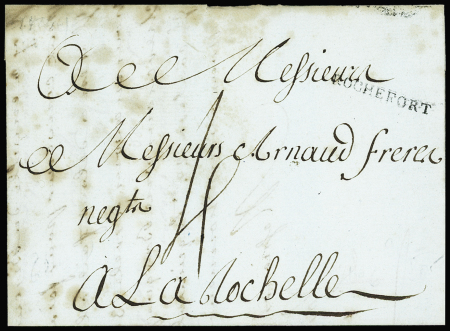 A Messieurs
ROCHEFORT
Messieurs Arnaud freres
negts
A La Rochelle